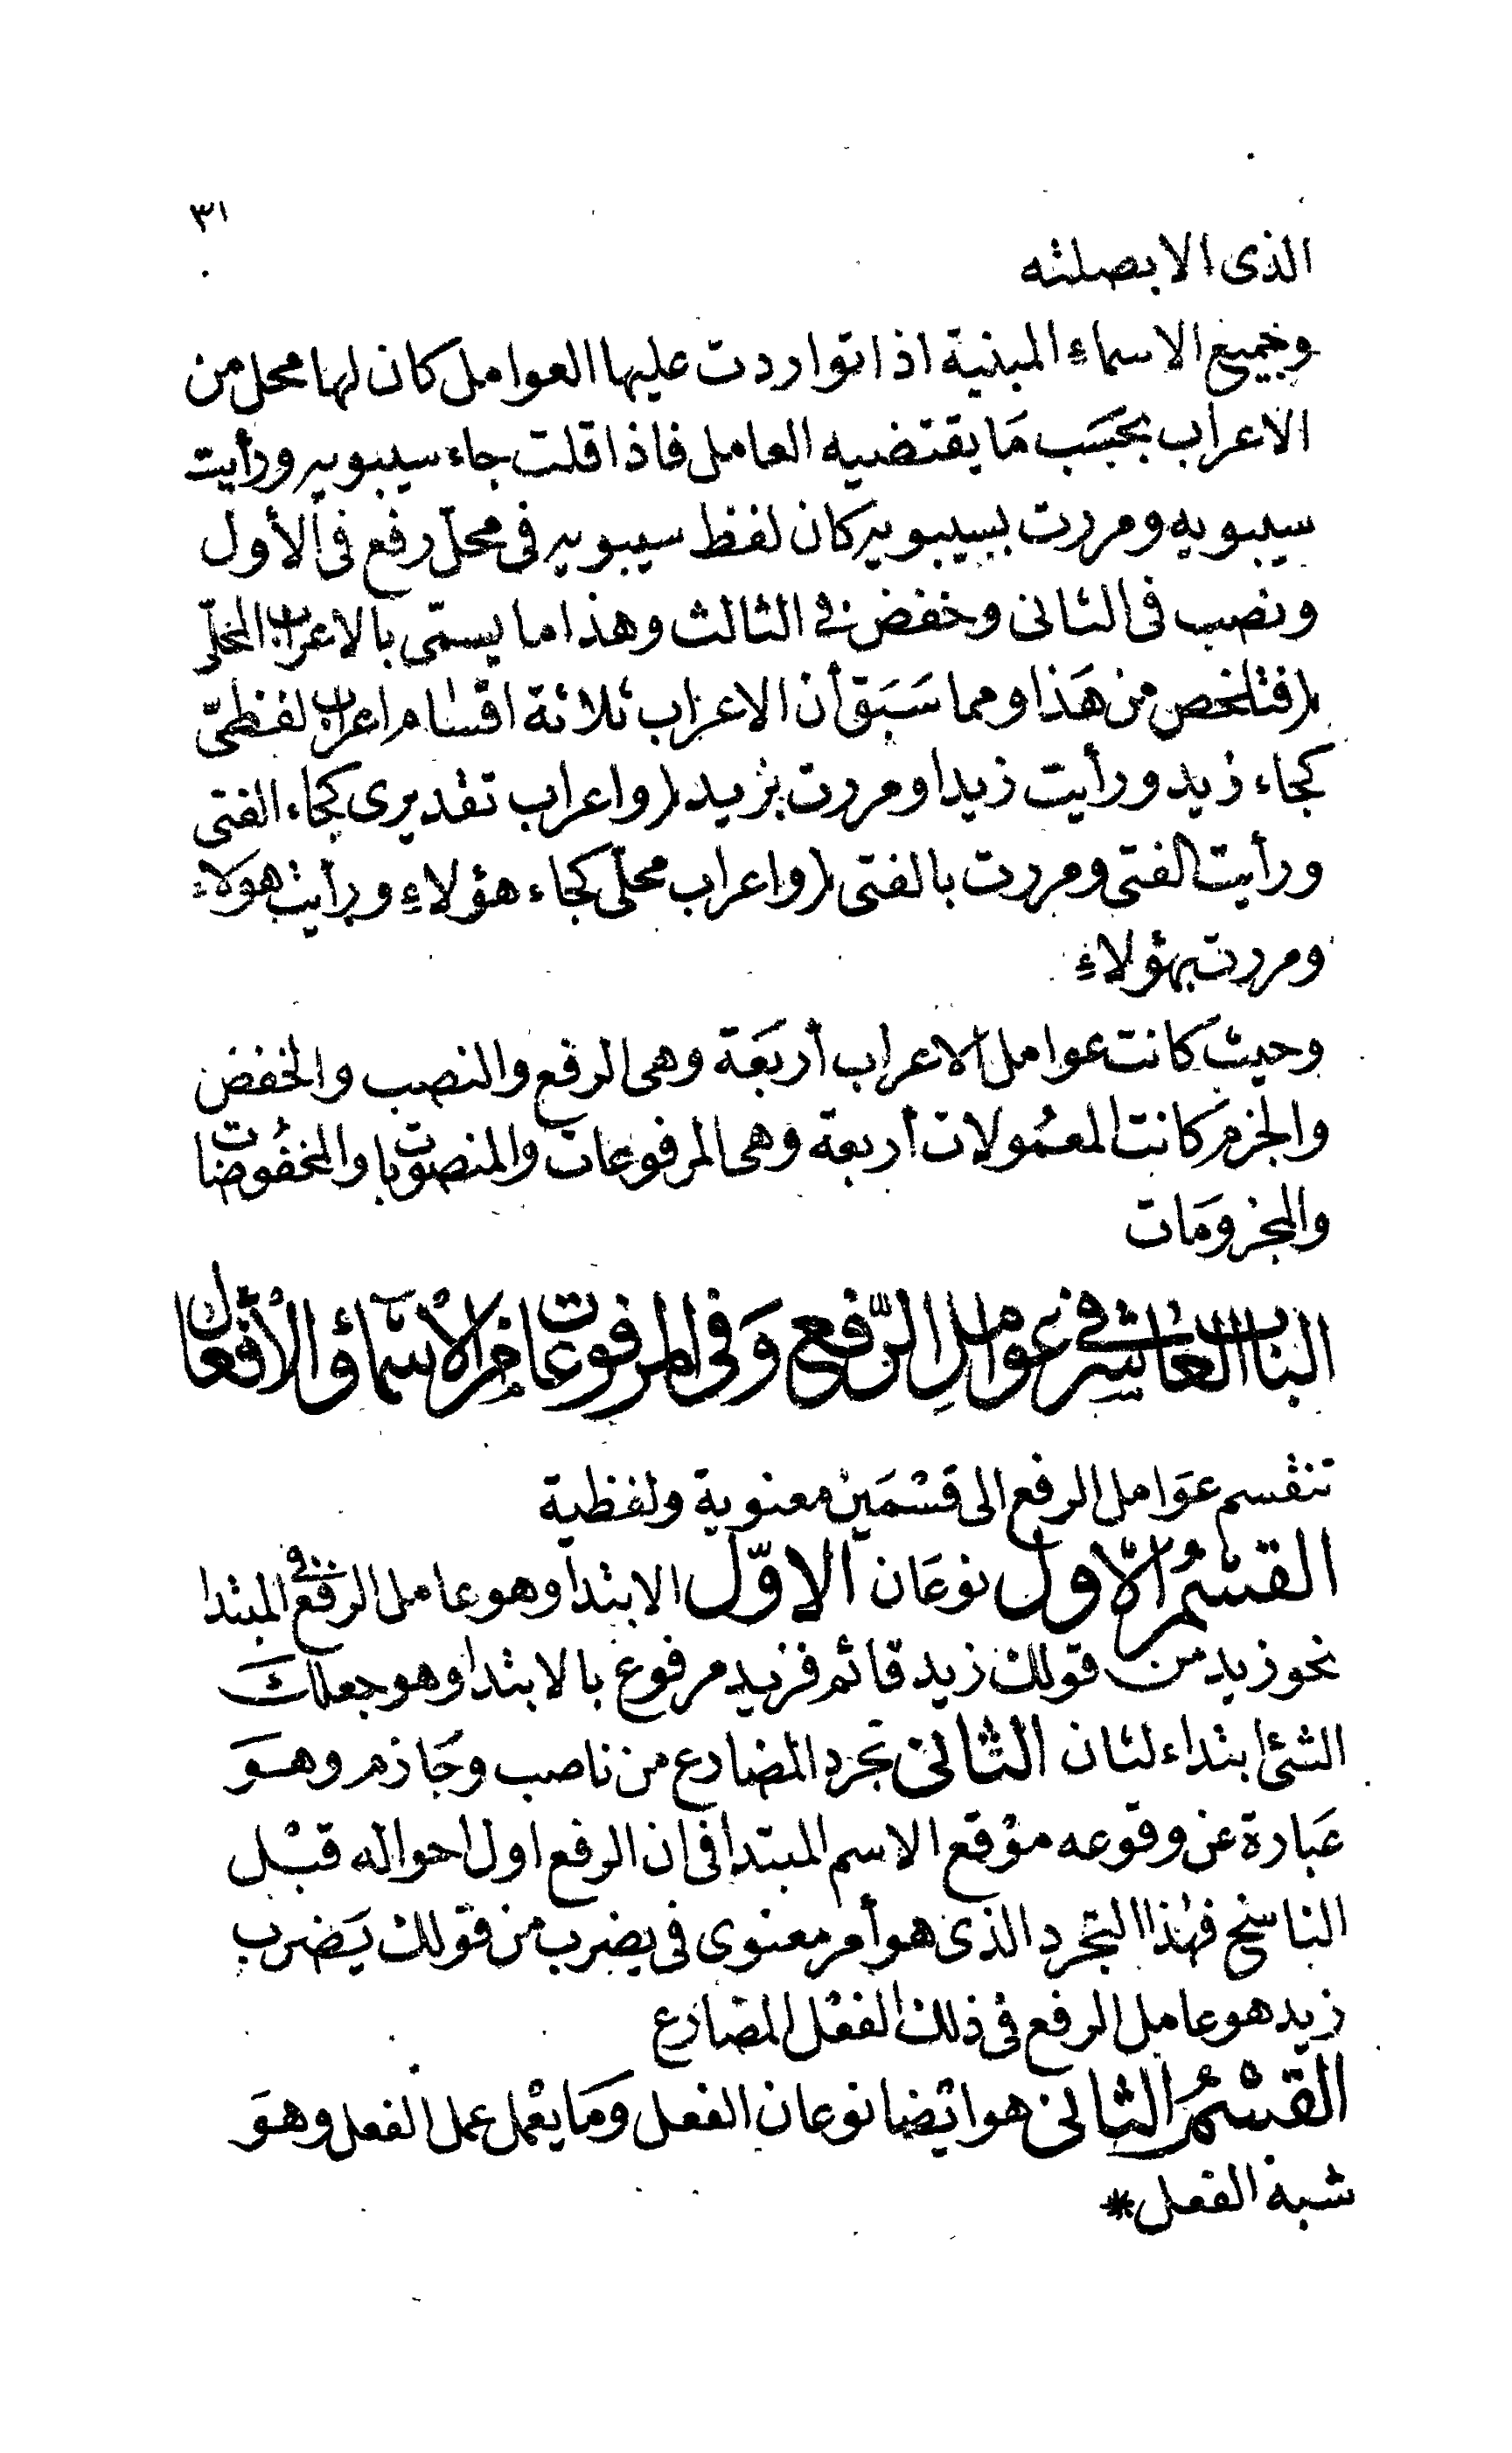 ٣١
الذى الا بصلته
وجميع الاسماء المبنية اذا تواردت عليها العوامل كان لها محل من
الاعراب بحَسَب مَا يقتضيه العامل فاذا قلت جاء سيبويه ورأيت
سيبويه ومررت بسيبويه كان لفظ سيبويه فى محلّ رفع فى الأول
ونصب فى الثانى وخفض فى الثالث وهذا ما يسمّى بالاعراب المحلّى
(فتلخص من هَذا ومما سَبَق أن الاعراب ثلاثة اقسام اعراب لفظىّ
كجاء زيد ورأيت زيدا ومررت بزيد (واعراب تقديرى كجاء الفتى
ورأيت الفتى ومررت بالفتى (واعراب محلّى كجاء هؤلاءِ ورأيت هؤلاءِ
ومررت بهؤلاءِ
وحيث كانت عوامل الاعراب أربعَة وهى الرفع والنصب والخفض
والجزم كانت المعمُولات أربعة وهى المرفوعات والمنصوبات والمخفُوضات
والمجزومَات
الباب العاشر فى عوامل الرّفع وَفى المرفوعات من الاسْماء والأفْعال
تنقسم عوَامل الرفع الى قسْمَيْن معنوية ولفظية
القسْمُ الاْول نوعَان الاوّل الابتدا وهو عامل الرفع فى المبتدا
نحو زيد من قولك زيد قائم فزيد مرفوع بالابتدا وهو جعلك
الشئ ابتداء لثان الثانى تجرد المضارع من ناصب وجَازم وهوَ
عبَارة عن وقوعه موْقع الاسم المبتدا فى ان الرفع اول احواله قبْل
الناسخ فهٰذا التجرد الذى هو أمر معنوى فى يضرب من قولك يَضرب
زيد هو عامل الرفع فى ذلك الفعْل المضارع
القسْمُ الثانى هو ايْضا نوعان الفعل وَمَا يعْمل عمل الفعل وهوَ
شبه الفعل *